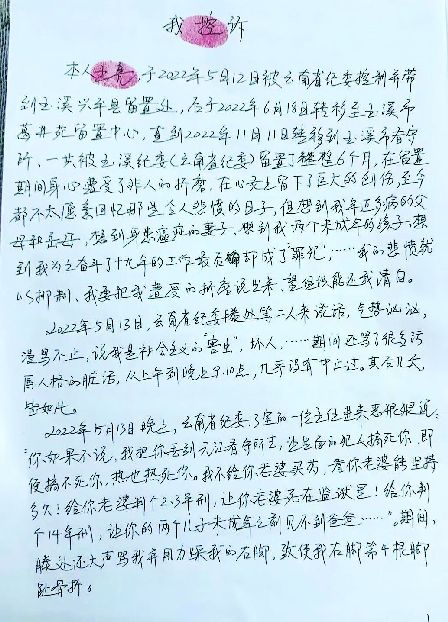 我控诉
本人王亮,于2022年5月12日被云南省纪委控制并带
到玉溪兴平县留置处,后于2022年6月18日转移至玉溪市
留置中心,直到2022年11月11日转移到玉溪市看守
所、一共被玉溪纪委(云南省纪委)留置了整整6个月,在留置
期间身心遭受了非人的折磨,在心灵上留下了巨大的创伤,至今
都不太愿意回忆那些令人悲愤的日子,但想到我年迈多病的父
母和岳母,想到身患癌症的妻子、想到我两个未成年的孩子,想
到我为之奋斗了十九年的工作最后确却成了"罪犯",……我的悲愤就
难以抑制、我要把我遭受的折磨说出来,望组织能还我清白。
2022年5月13日,云南省纪委 二人来谈话,气势汹汹,
谩骂不止,说我是社会主义的"害虫",坏人,……期间还骂了很多污
辱人格的脏话,从上午到晚上9、10点,几乎没有中止过。其后几天,
皆如此。
2022年5月15日晚上,云南省纪委7室的一位主任进来恶狠狠说:
"你如果不说,我把你丢到元江看守所去,让里面的犯人搞死你,即
使搞不死你,热也热死你。我不给你老婆买药,看你老婆能坚持
多久!给你老婆判个2-3年刑,让你老婆死在监狱里!给你判
个14年刑,让你的两个儿子未成年之前见不到爸爸……"。期间,
还大声骂我并用力踩我的右脚,致使我右脚第4根脚
趾骨折。
1